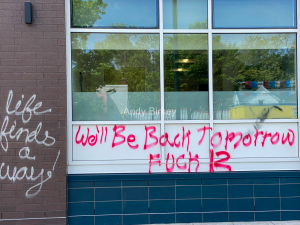 life
finds
a
way!
Andy Birkey
We'll Be Back Tomorrow
FUCK 12